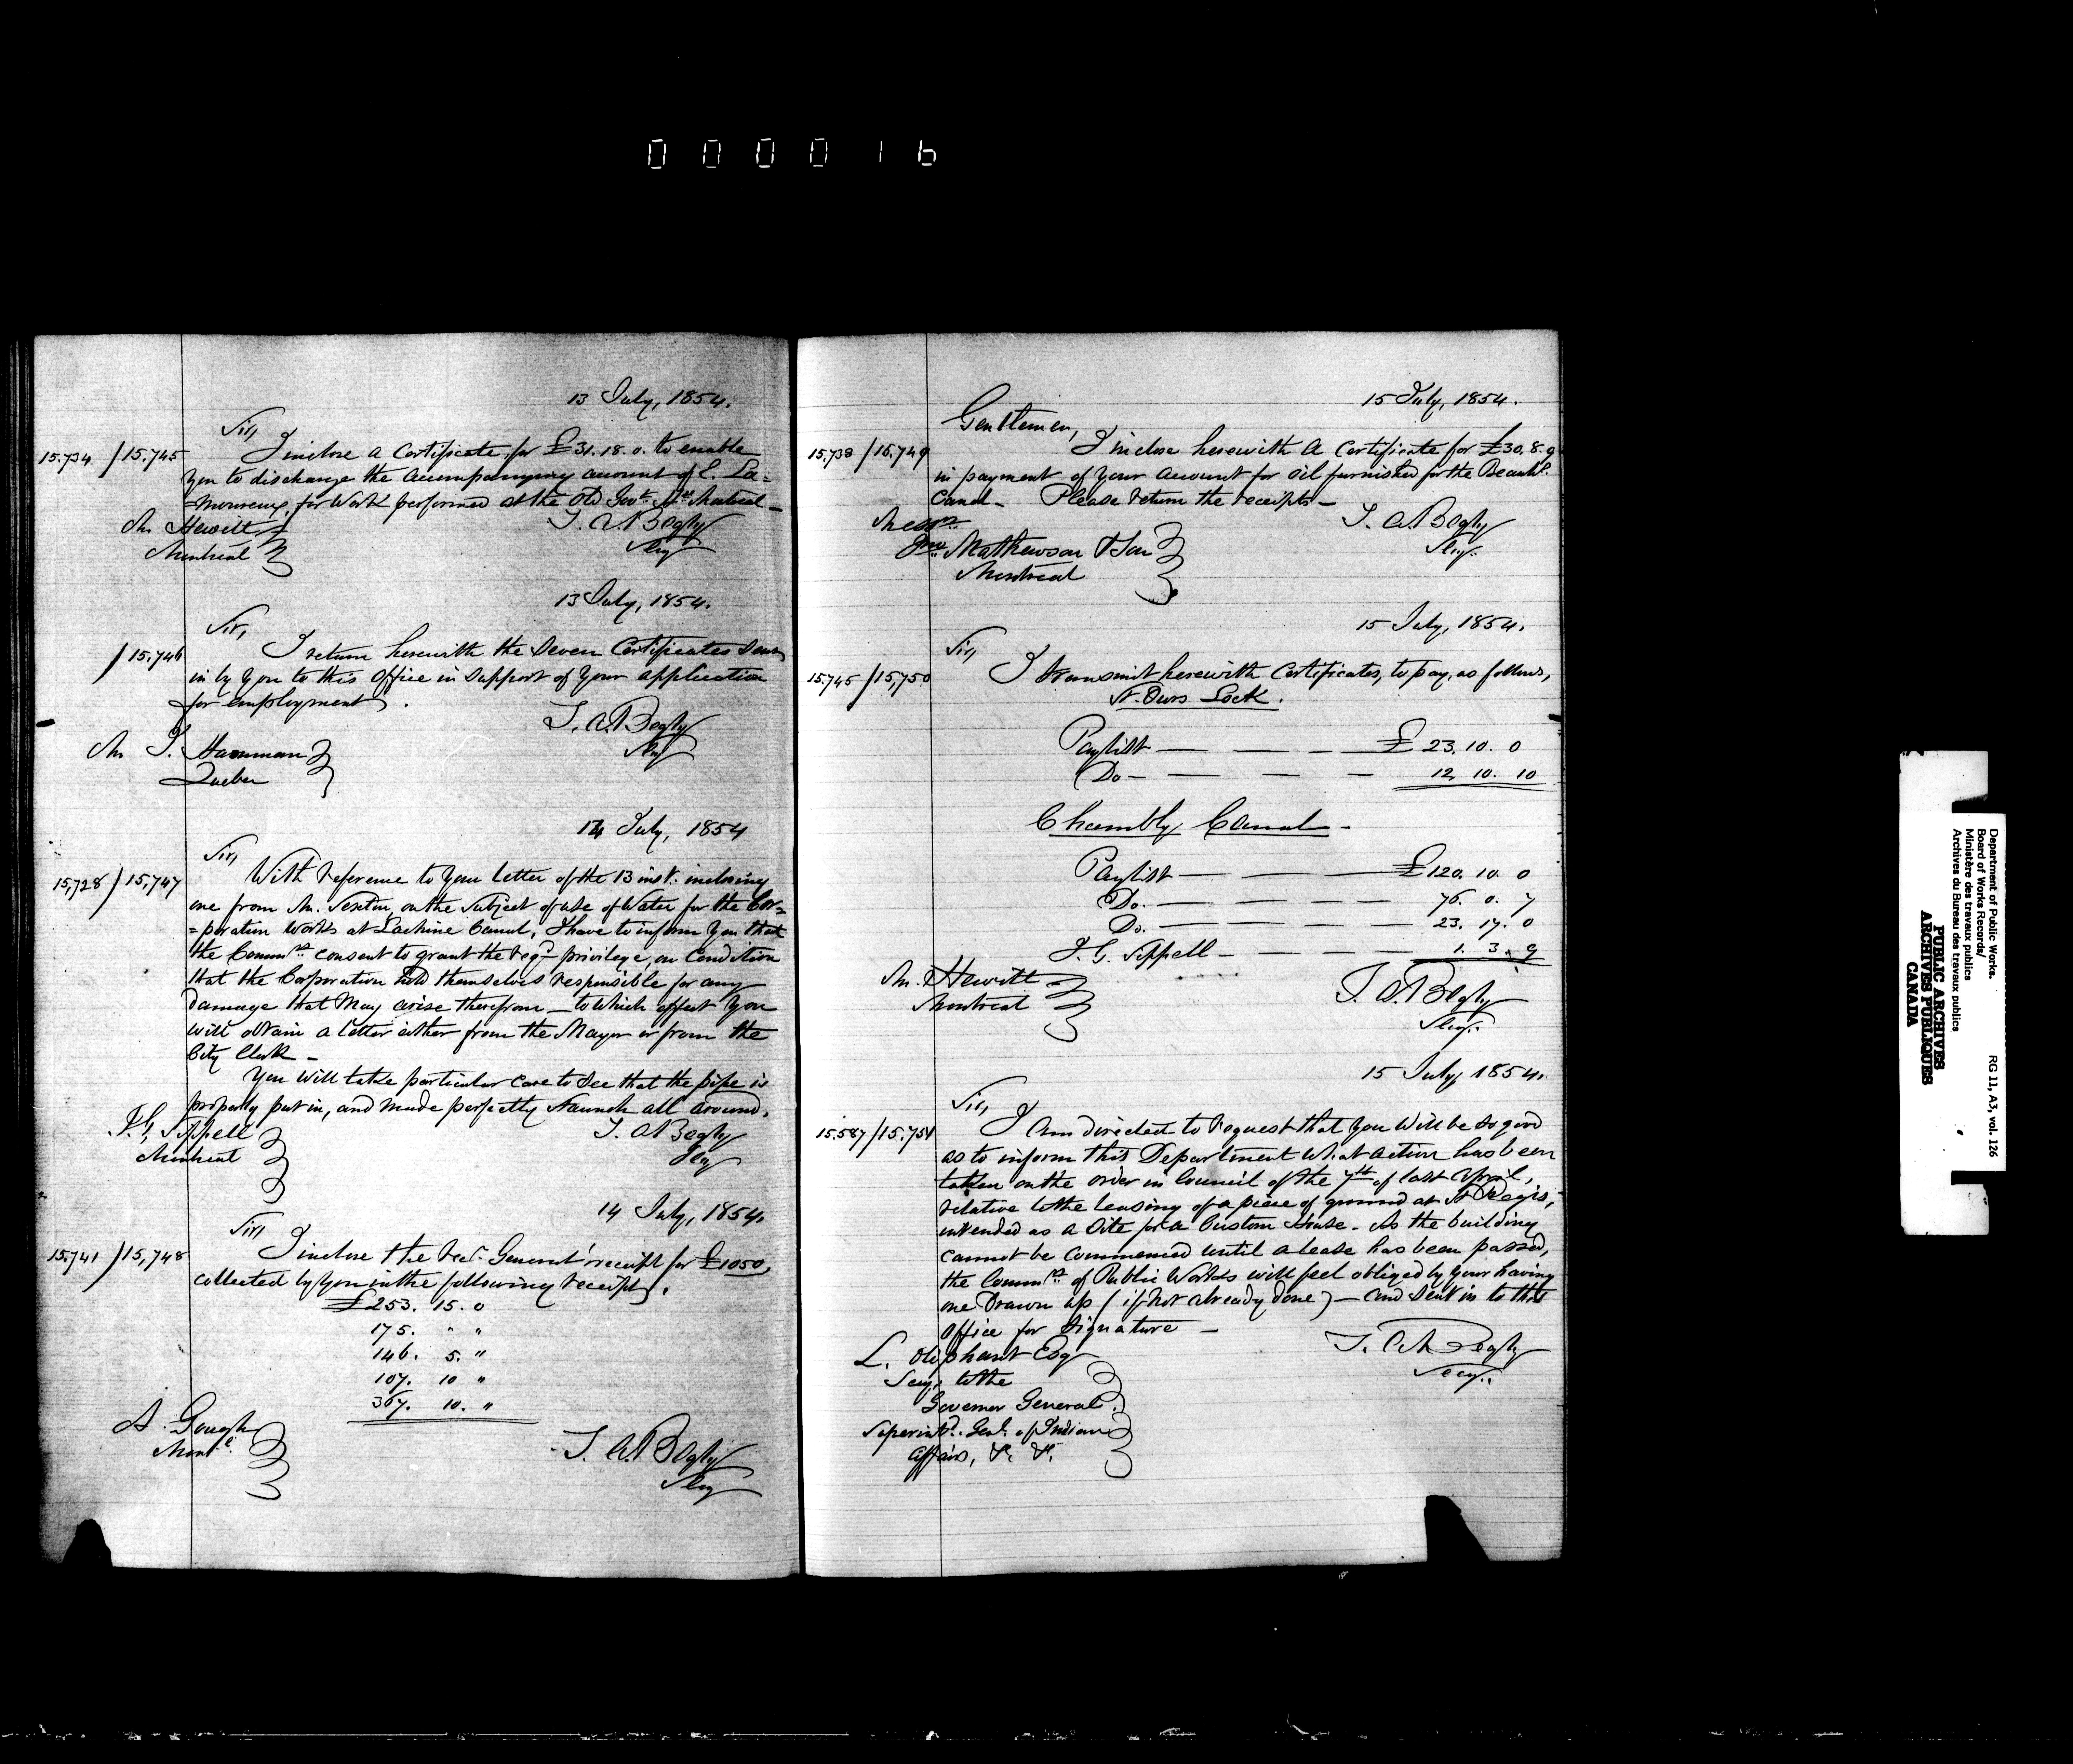 000016
13 July, 1854.
Sir,
15.734 / 15.745 I inclose a Certificate for £31.18.0. to enable
you to discharge the accompanying account of E. La=
=moureux, for Work performed at the Old Govt. Montreal
T. A. Begly
Secy
Mr. Hewitt
Montreal
13 July, 1854.
Sir,
/ 15.746 I return herewith the Seven Certificates Sent
in by you to this Office in Support of Your application
for employment.
T. A. Begly
Secy
Mr. J.
Quebec
14 July, 1854
Sir,
15,728 / 15,747 With reference to your letter of the 13 inst. inclosing
one from Mr. Sexton, on the subject of use of Water for the Cor=
=poration Works at Lachine Canal, I have to inform You that
the Commrs. consent to grant the reqd. privilege, on Condition
that the Corporation hold themselves responsible for any
damage that May arise therefrom — to which effect You
will obtain a letter either from the Mayor or from the
City Clerk —
You will take particular care to see that the pipe is
properly put in, and made perfectly Staunch all around.
T. A. Begly
Secy
J. G. Sippell
Montreal
14 July, 1854.
Sir,
15.741 / 15,748 I inclose the Recr. General's receipt for £1050,
collected by You in the following receipts.
£253. 15. 0
175. " "
146. 5. "
107. 10 "
367. 10. "
A. Gough
Montl.
T. A. Begly
Secy
15 July, 1854.
Gentlemen,
15.738 / 15.749 I inclose herewith a Certificate for £30.8.9
in payment of Your account for oil furnished for the Beauhs.
Canal — Please return the receipts —
T. A. Begly
Secy.
Messrs.
Jno. Mathewson & Son
Montreal
15 July, 1854.
Sir,
15.745 / 15,750 I transmit herewith Certificates, to pay, as follows,
St. Ours Lock.
Paylist — — — — £ 23. 10. 0
Do — — — — 12 10. 10
Chambly Canal —
Paylist — — — £120. 10. 0
Do. — — — 76. 0. 7
Do. — — — 23. 17. 0
J. G. Sippell — — — 1. 3. 9
Mr. Hewitt
Montreal
T. A. Begly
Secy.
15 July, 1854.
Sir,
15.587 / 15.751 I Am directed to request that You Will be so good
as to inform this Department What action has been
taken on the order in Council of the 7th of last April,
relative to the leasing of a piece of ground at St Regis,
intended as a Site for a Custom House — As the building
cannot be commenced until a lease has been passed,
the Commrs. of Public Works will feel obliged by Your having
one Drawn up (if not already done) — and sent in to this
office for signature —
T. A. Begly
Secy.
L. Oliphant Esq
Secy. to the
Governor General.
Superintd. Genl. of Indian
Affairs, &c. &c.
Department of Public Works.
Board of Works Records/
Ministère des travaux publics
Archives du Bureau des travaux publics
RG 11, A3, vol. 126
PUBLIC ARCHIVES
ARCHIVES PUBLIQUES
CANADA